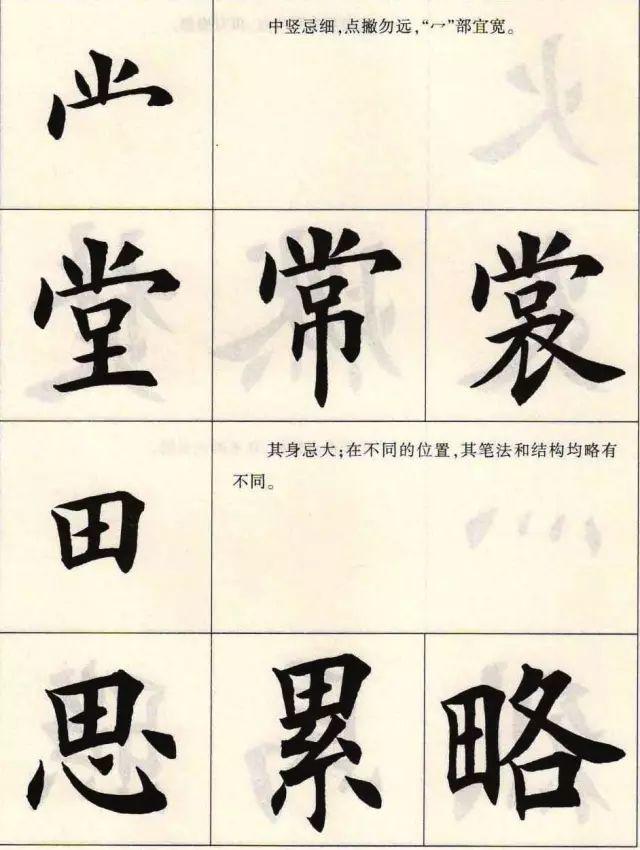 ⺌冖
中竖忌细,点撇勿远,“冖”部宜宽。
堂 常 裳
田
其身忌大;在不同的位置,其笔法和结构均略有
不同。
思 累 略